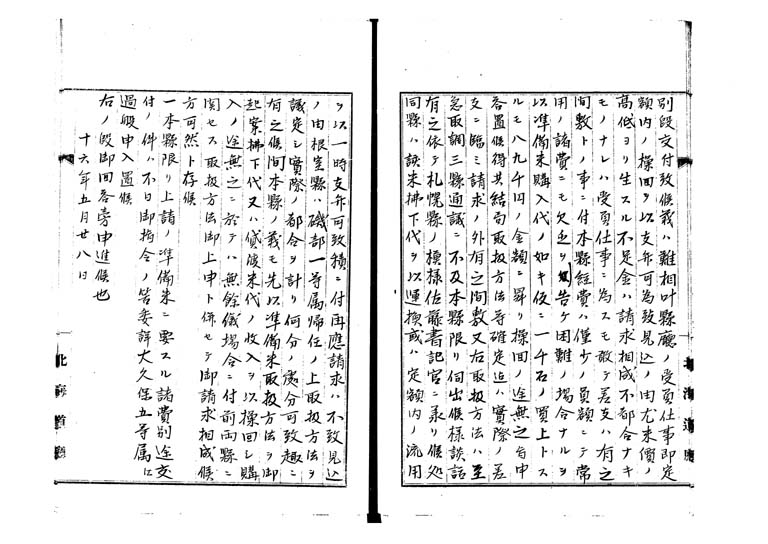 別段交付致候義ハ難相叶縣廳ノ受負仕事即定
額内ノ操回ヲ以支弁可為致見込ノ由尤米價ノ
高低ヨリ生スル不足金ハ請求相成不都合ナキ
モノナレハ受負仕事ニ為スモ敢テ差支ハ有之
間敷トノ事ニ付本縣經費ハ僅少ノ員額ニテ常
用ノ諸費ニモ欠乏ヲ告ケ困難ノ場合ナルヲ
以準備米購入代ノ如キ仮ニ一千石ノ買上トス
ルモ八九千円ノ金額ニ昇リ操回ノ途無之旨申
答置候得共結局取扱方法等確定迄ハ實際ノ差
支ニ臨ミ請求ノ外有之間敷又右取扱方法ハ至
急取調三縣通議ニ不及本縣限リ伺出候様談話
有之依テ札幌縣ノ模様佐藤書記官ニ承リ候処
同縣ハ該米拂下代ヲ以運換或ハ定額内ノ流用
ヲ以一時支弁可致積ニ付再應請求ハ不致見込
ノ由根室縣ハ磯部一等属帰任ノ上取扱方法ヲ
議定シ實際ノ都合ヲ計リ何分ノ處分可致趣ニ
有之候間本縣ノ義モ先以準備米取扱方法ヲ御
起案拂下代又ハ貸渡米代ノ収入ヲ以操回シ購
入ノ途無之ニ於テハ無餘儀場合ニ付前両縣ニ
関セス取扱方法御上申ト併セテ御請求相成候
方可然ト存候
一本縣限リ上請ノ準備米ニ要スル諸費別途交
付ノ件ハ不日御指令ノ筈委詳大久保五等属ニ
過般申入置候
右ノ段御回答旁申進候也
十六年五月廿八日
北海道廳
北海道廳